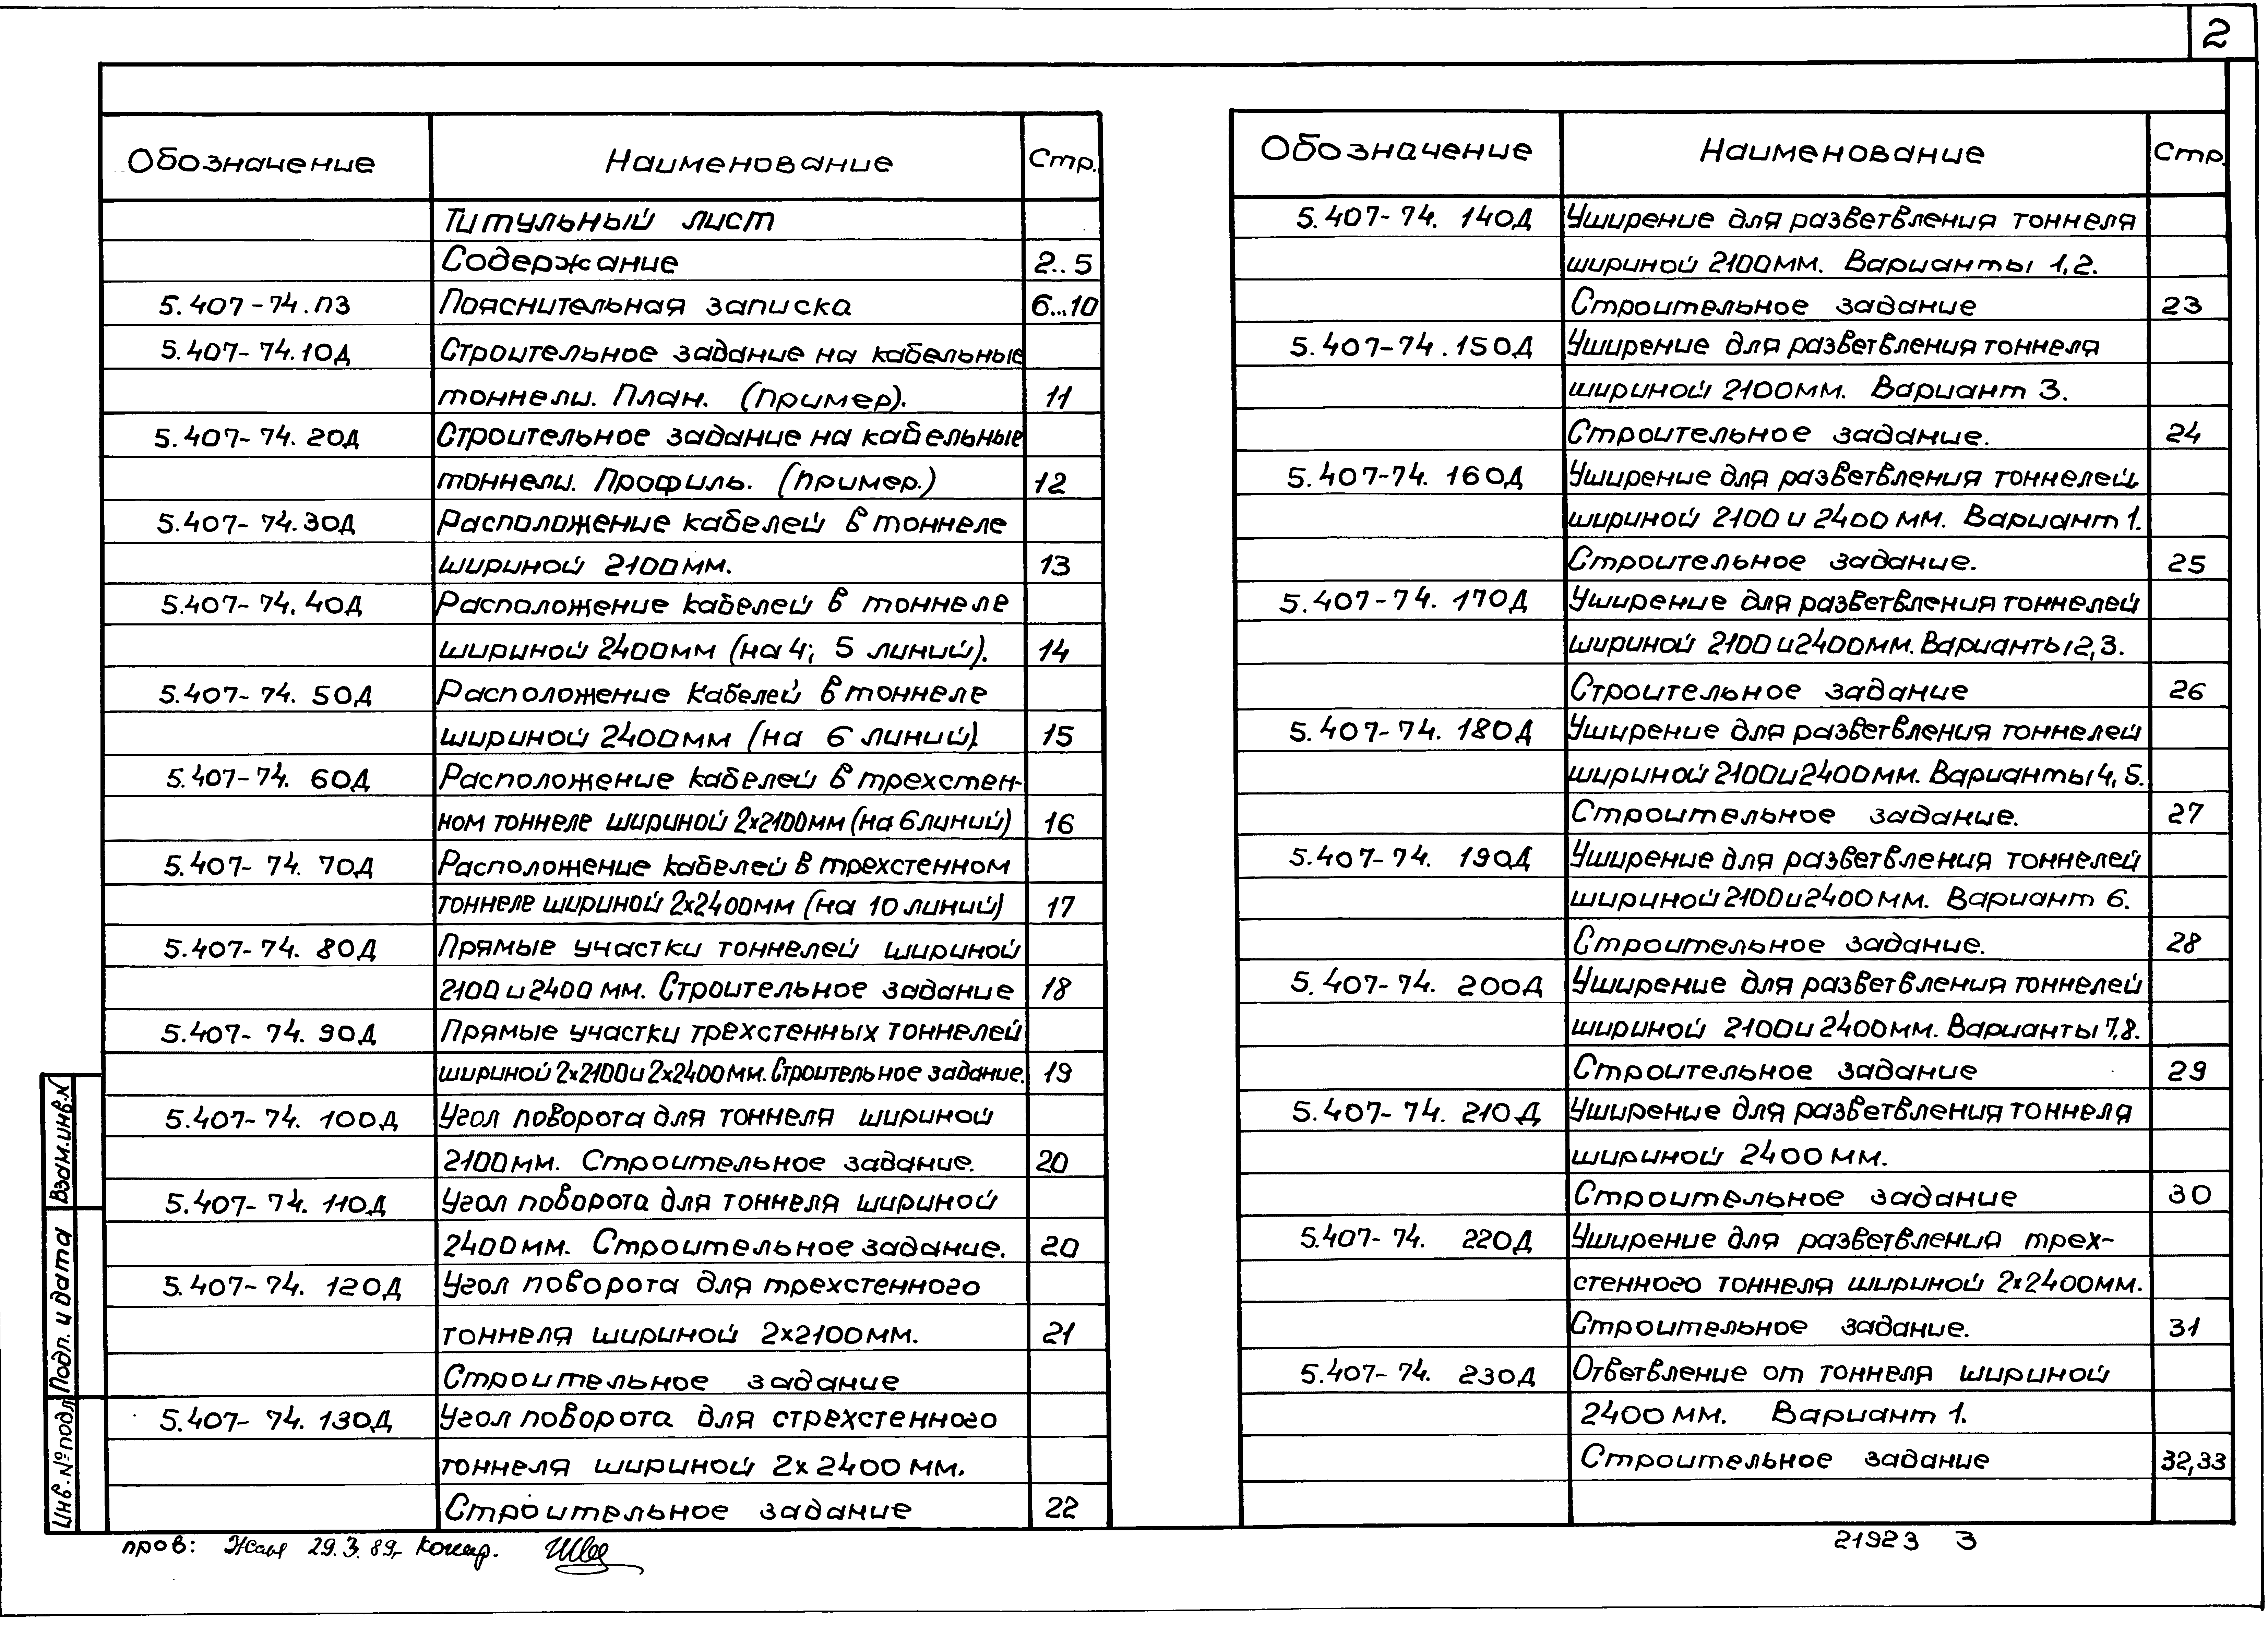 2
Обозначение Наименование Стр.
Титульный лист
Содержание 2..5
5.407-74.ПЗ Пояснительная записка 6...10
5.407-74.10Д Строительное задание на кабельные
тоннели. План. (Пример). 11
5.407-74.20Д Строительное задание на кабельные
тоннели. Профиль. (Пример.) 12
5.407-74.30Д Расположение кабелей в тоннеле
шириной 2100мм. 13
5.407-74.40Д Расположение кабелей в тоннеле
шириной 2400мм (на 4; 5 линий). 14
5.407-74.50Д Расположение кабелей в тоннеле
шириной 2400мм (на 6 линий). 15
5.407-74.60Д Расположение кабелей в трехстен-
ном тоннеле шириной 2х2100мм (на 6 линий) 16
5.407-74.70Д Расположение кабелей в трехстенном
тоннеле шириной 2х2400мм (на 10 линий) 17
5.407-74.80Д Прямые участки тоннелей шириной
2100 и 2400 мм. Строительное задание 18
5.407-74.90Д Прямые участки трехстенных тоннелей
шириной 2х2100 и 2х2400 мм. Строительное задание. 19
5.407-74.100Д Угол поворота для тоннеля шириной
2100мм. Строительное задание. 20
5.407-74.110Д Угол поворота для тоннеля шириной
2400мм. Строительное задание. 20
5.407-74.120Д Угол поворота для трехстенного
тоннеля шириной 2х2100мм. 21
Строительное задание
5.407-74.130Д Угол поворота для стрехстенного
тоннеля шириной 2х2400 мм.
Строительное задание 22
Обозначение Наименование Стр.
5.407-74.140Д Уширение для разветвления тоннеля
шириной 2100мм. Варианты 1,2.
Строительное задание 23
5.407-74.150Д Уширение для разветвления тоннеля
шириной 2100мм. Вариант 3.
Строительное задание. 24
5.407-74.160Д Уширение для разветвления тоннелей
шириной 2100 и 2400 мм. Вариант 1.
Строительное задание. 25
5.407-74.170Д Уширение для разветвления тоннелей
шириной 2100 и 2400мм. Варианты 2,3.
Строительное задание 26
5.407-74.180Д Уширение для разветвления тоннелей
шириной 2100 и 2400 мм. Варианты 4,5.
Строительное задание. 27
5.407-74.190Д Уширение для разветвления тоннелей
шириной 2100 и 2400 мм. Вариант 6.
Строительное задание. 28
5.407-74.200Д Уширение для разветвления тоннелей
шириной 2100 и 2400мм. Варианты 7,8.
Строительное задание 29
5.407-74.210Д Уширение для разветвления тоннеля
шириной 2400 мм.
Строительное задание 30
5.407-74.220Д Уширение для разветвления трех-
стенного тоннеля шириной 2х2400мм.
Строительное задание. 31
5.407-74.230Д Ответвление от тоннеля шириной
2400 мм. Вариант 1.
Строительное задание 32,33
Взам.инв.N
Подп. и дата
Инв.№подл
пров: 29.3.89г. копир.
21923 3